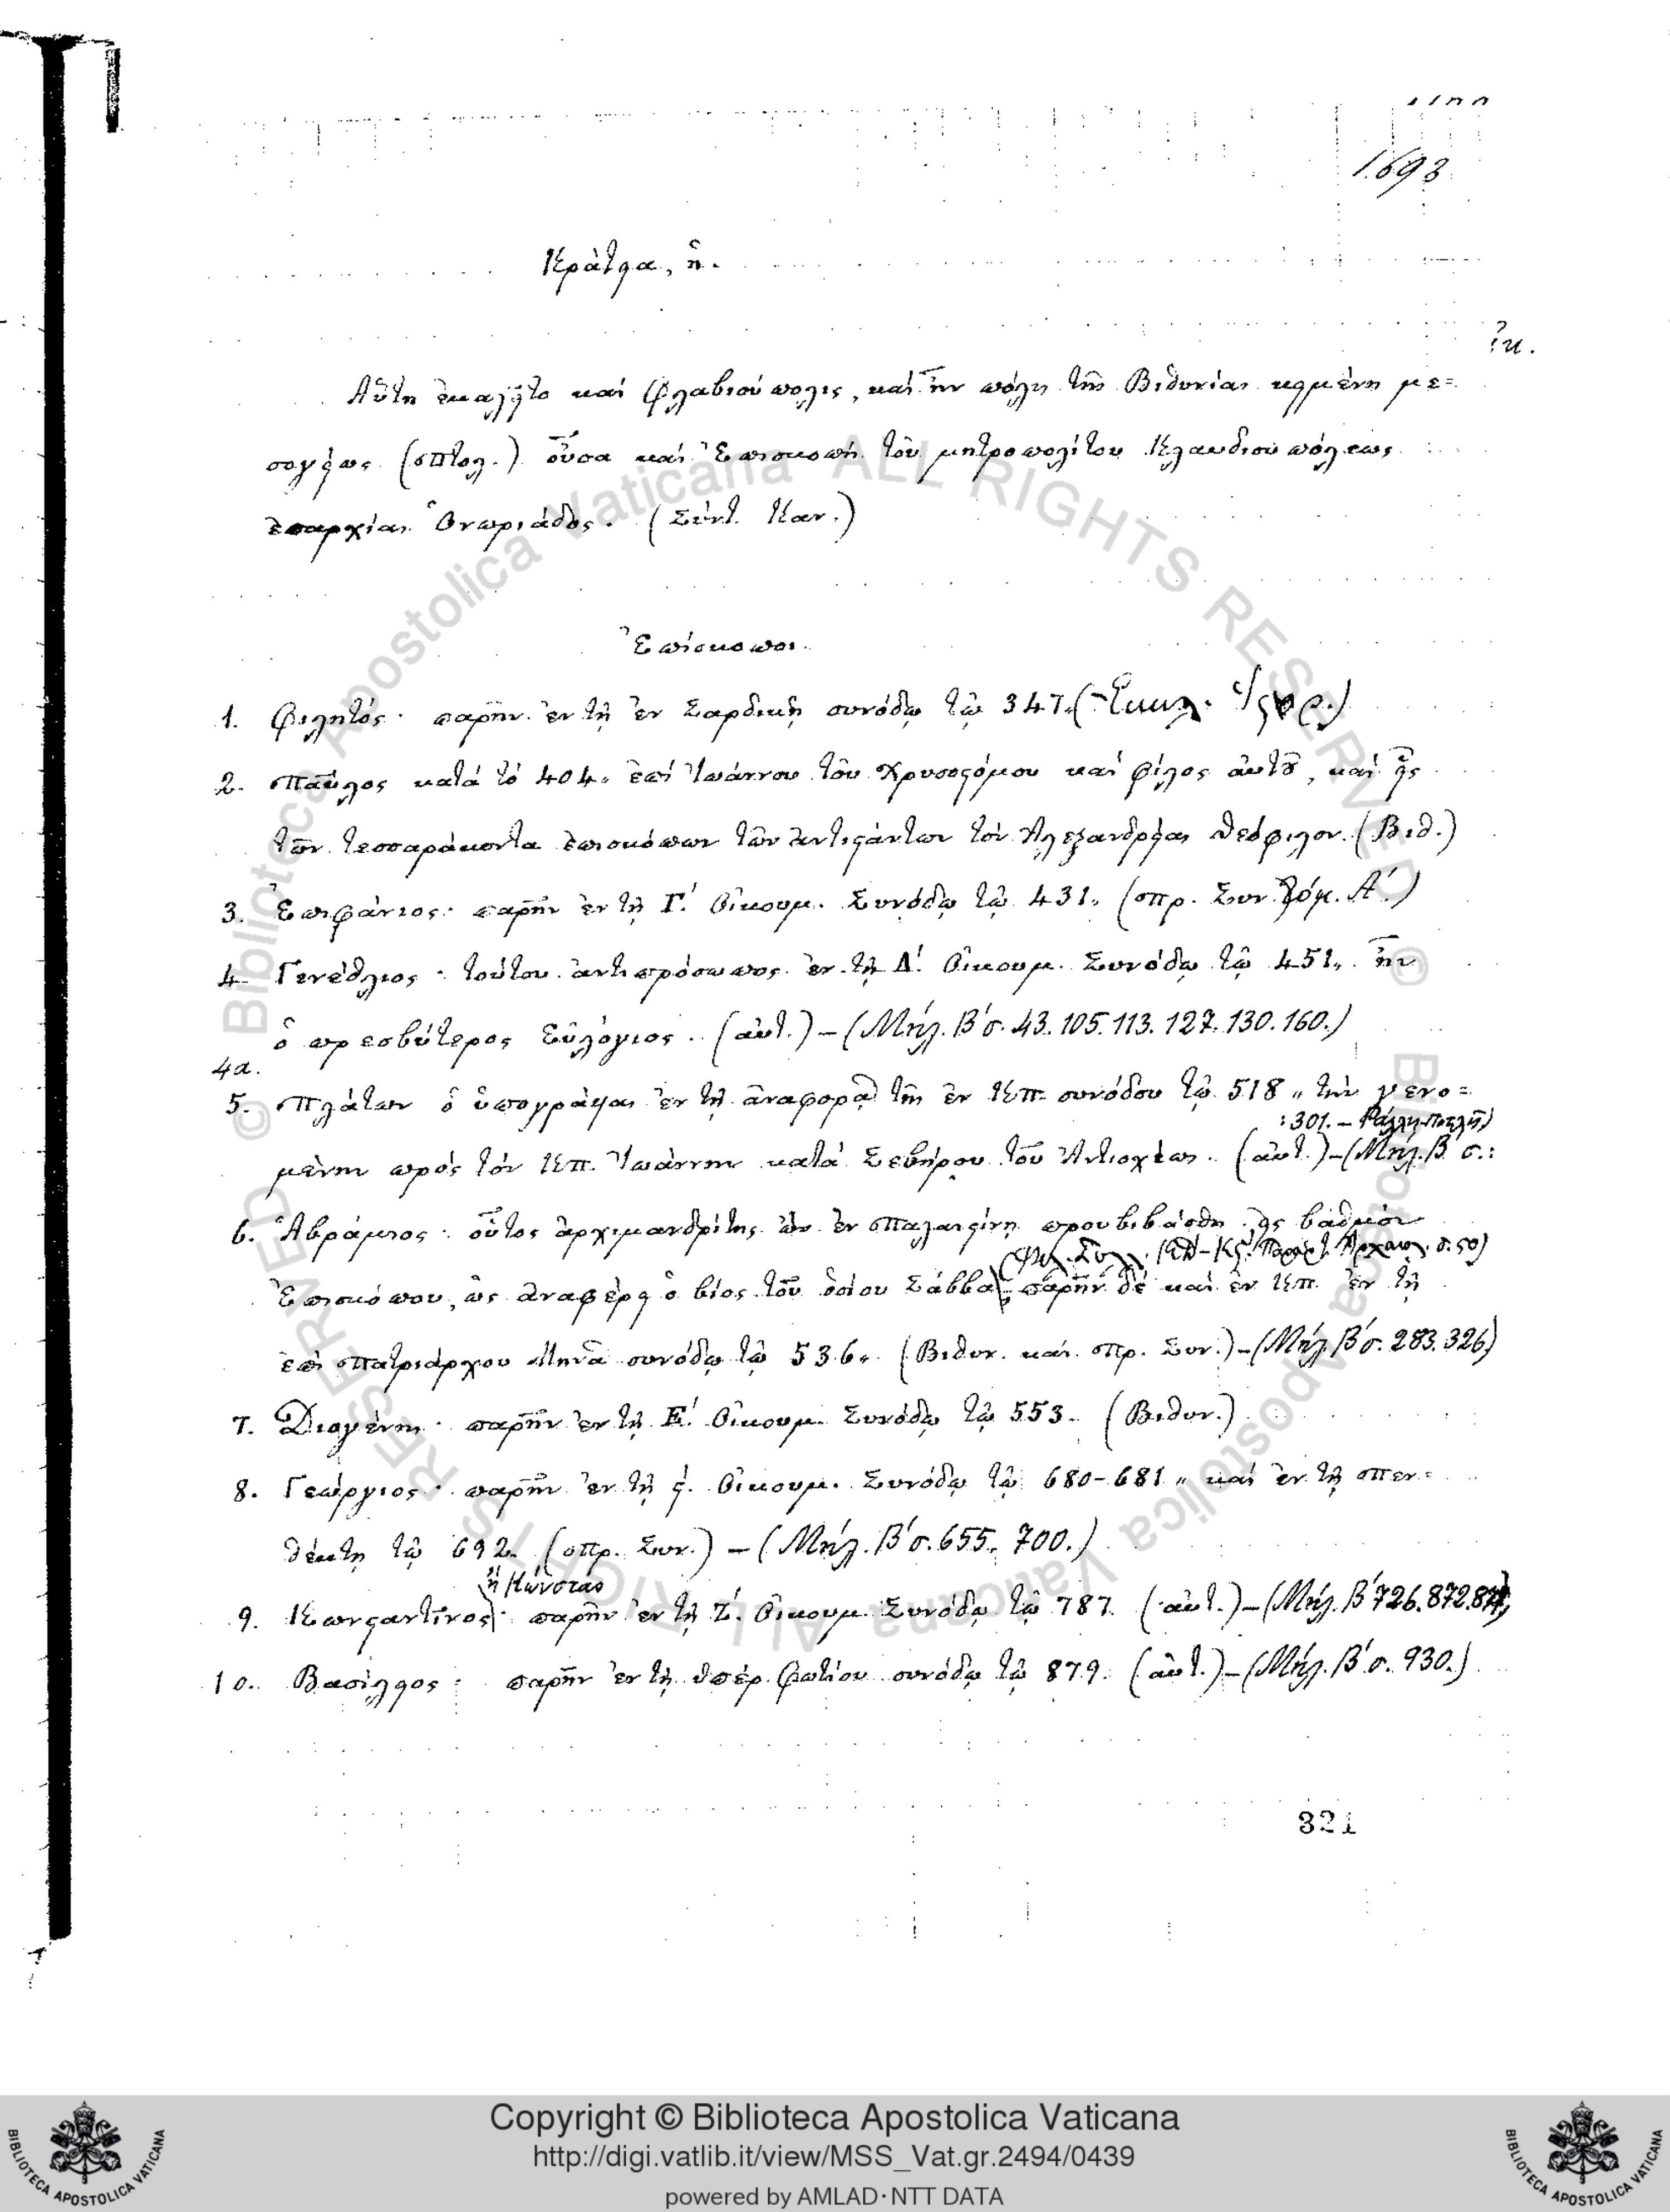 1.693
Κράτεια, ἡ.
Αὕτη ἐκαλεῖτο καί Φλαβιούπολις, καί ἦν πόλις τῆς Βιθυνίας κειμένη με=
σογείως (Πτολ.) οὖσα καί Ἐπισκοπή τοῦ μητροπολίτου Κλαυδιουπόλεως
ἐπαρχίας Ὁνωριάδος. (Σύντ. Καν.)
Ἐπίσκοποι.
1. Φιλητός· παρῆν ἐν τῇ ἐν Σαρδικῇ συνόδῳ τῷ 347. (Ἐκκλ. Ἱστορ.)
2. Παῦλος κατά τό 404. ἐπί Ἰωάννου τοῦ Χρυσοστόμου καί φίλος αὐτοῦ, καί εἷς
τῶν τεσσαράκοντα ἐπισκόπων τῶν ἀντιστάντων τόν Ἀλεξανδρείας Θεόφιλον. (Βιθ.)
3. Ἐπιφάνιος· παρῆν ἐν τῇ Γ΄. Οἰκουμ. Συνόδῳ τῷ 431. (Πρ. Συν. Τόμ. Α΄.)
4. Γενέθλιος· τούτου ἀντιπρόσωπος ἐν τῇ Δ΄. Οἰκουμ. Συνόδῳ τῷ 451. ἦν
ὁ πρεσβύτερος Εὐλόγιος. (αὐτ.) – (Μήλ. Β΄ σ. 43. 105. 113. 127. 130. 160.)
4α.
5. Πλάτων ὁ ὑπογράψας ἐν τῇ ἀναφορᾷ τῆς ἐν Κπ. συνόδου τῷ 518 „ τήν γενο=
: 301. –
μένην πρός τόν Κπ. Ἰωάννην κατά Σεβήρου τοῦ Ἀντιοχείας. (αὐτ.) – (Μήλ. Β΄ σ.:
6. Ἀβράμιος· οὗτος ἀρχιμανδρίτης ὤν ἐν Παλαιστίνῃ προυβιβάσθη εἰς βαθμόν
Ἐπισκόπου, ὡς ἀναφέρει ὁ βίος τοῦ ὁσίου Σάββα, παρῆν δέ καί ἐν Κπ. ἐν τῇ
ἐπί Πατριάρχου Μηνᾶ συνόδῳ τῷ 536. (Βιθυν. καί Πρ. Συν.) – (Μήλ. Β΄ σ. 283. 326.)
7. Διογένης· παρῆν ἐν τῇ Ε΄. Οἰκουμ. Συνόδῳ τῷ 553. (Βιθυν.)
8. Γεώργιος· παρῆν ἐν τῇ ϛ΄. Οἰκουμ. Συνόδῳ τῷ 680–681 „ καί ἐν τῇ Πεν=
θέκτῃ τῷ 692. (Πρ. Συν.) – (Μήλ. Β΄ σ. 655. 700.)
ἤ Κώνστας
9. Κωνσταντῖνος· παρῆν ἐν τῇ Ζ΄. Οἰκουμ. Συνόδῳ τῷ 787. (αὐτ.) – (Μήλ. Β΄ 726. 872.
10. Βασίλειος· παρῆν ἐν τῇ ὑπέρ Φωτίου συνόδῳ τῷ 879. (αὐτ.) – (Μήλ. Β΄ σ. 930.)
321
© Biblioteca Apostolica Vaticana ALL RIGHTS RESERVED
© Biblioteca Apostolica Vaticana ALL RIGHTS RESERVED
Copyright © Biblioteca Apostolica Vaticana
http://digi.vatlib.it/view/MSS_Vat.gr.2494/0439
powered by AMLAD·NTT DATA
BIBLIOTECA APOSTOLICA VATICANA
BIBLIOTECA APOSTOLICA VATICANA